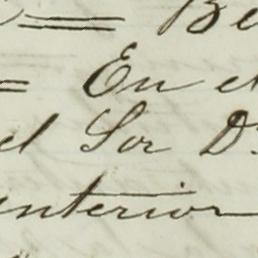 = Be
= En el
el Sor Dn
interior